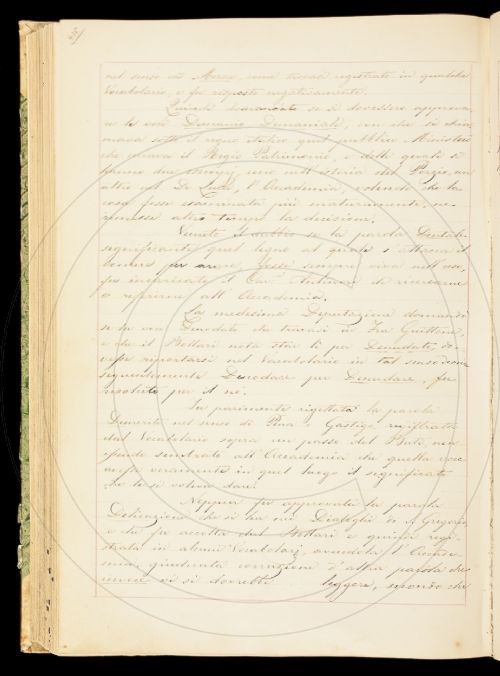 nel senso di Merse, come trovasi registrata in qualche
Vocabolario, e fu risposto negativamente.
Quindi domandato se si dovessero approva-
re le voci Demanio, Demaniale, con che si chia-
mava sotto il regno Italico quel pubblico Ministero
che curava il Regio Patrimonio, e delle quali si
hanno due esempi, uno nell'istoria del Porzio, un
altro nel De Luca, l'Accademia, volendo che la
cosa fosse esaminata più maturamente, ne
rimesse altro tempo la decisione.
Venuto il dubbio se la parola Dentale
significante quel legno al quale s'attacca il
vomere per arare, fosse ancora viva nell'uso,
fu incaricato il Cav. Antinori di ricercarne
e referirne all'Accademia.
La medesima Deputazione domandò
se la voce Denodato che trovasi in Fra Guittone,
e che il Bottari nota star lì per Denudato, do-
vesse riportarsi nel Vocabolario in tal senso, con-
seguentemente Denodare per Denudare, fu
risoluto per il no.
Fu parimente rigettata la parola
Demerito nel senso di Pena o Gastigo registrata
dal Vocabolario sopra un passo del Buti, non
essendo sembrato all'Accademia che quella voce
avesse veramente in quel luogo il significato
che le si voleva dare.
Neppure fu approvata la parola
Delicazione che si ha nei Dialoghi di S. Gregorio,
e che fu accolta dal Bottari e quindi regi-
strata in alcuni Vocabolari, avendola l'Accade-
mia giudicata corruzione d'altra parola che
invece vi si dovrebbe leggere, secondo che